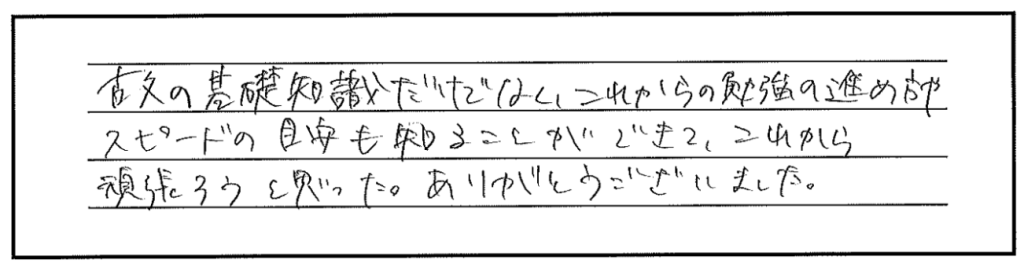 古文の基礎知識だけでなく、これからの勉強の進め方や
スピードの目安も知ることができて、これから
頑張ろうと思った。ありがとうございました。